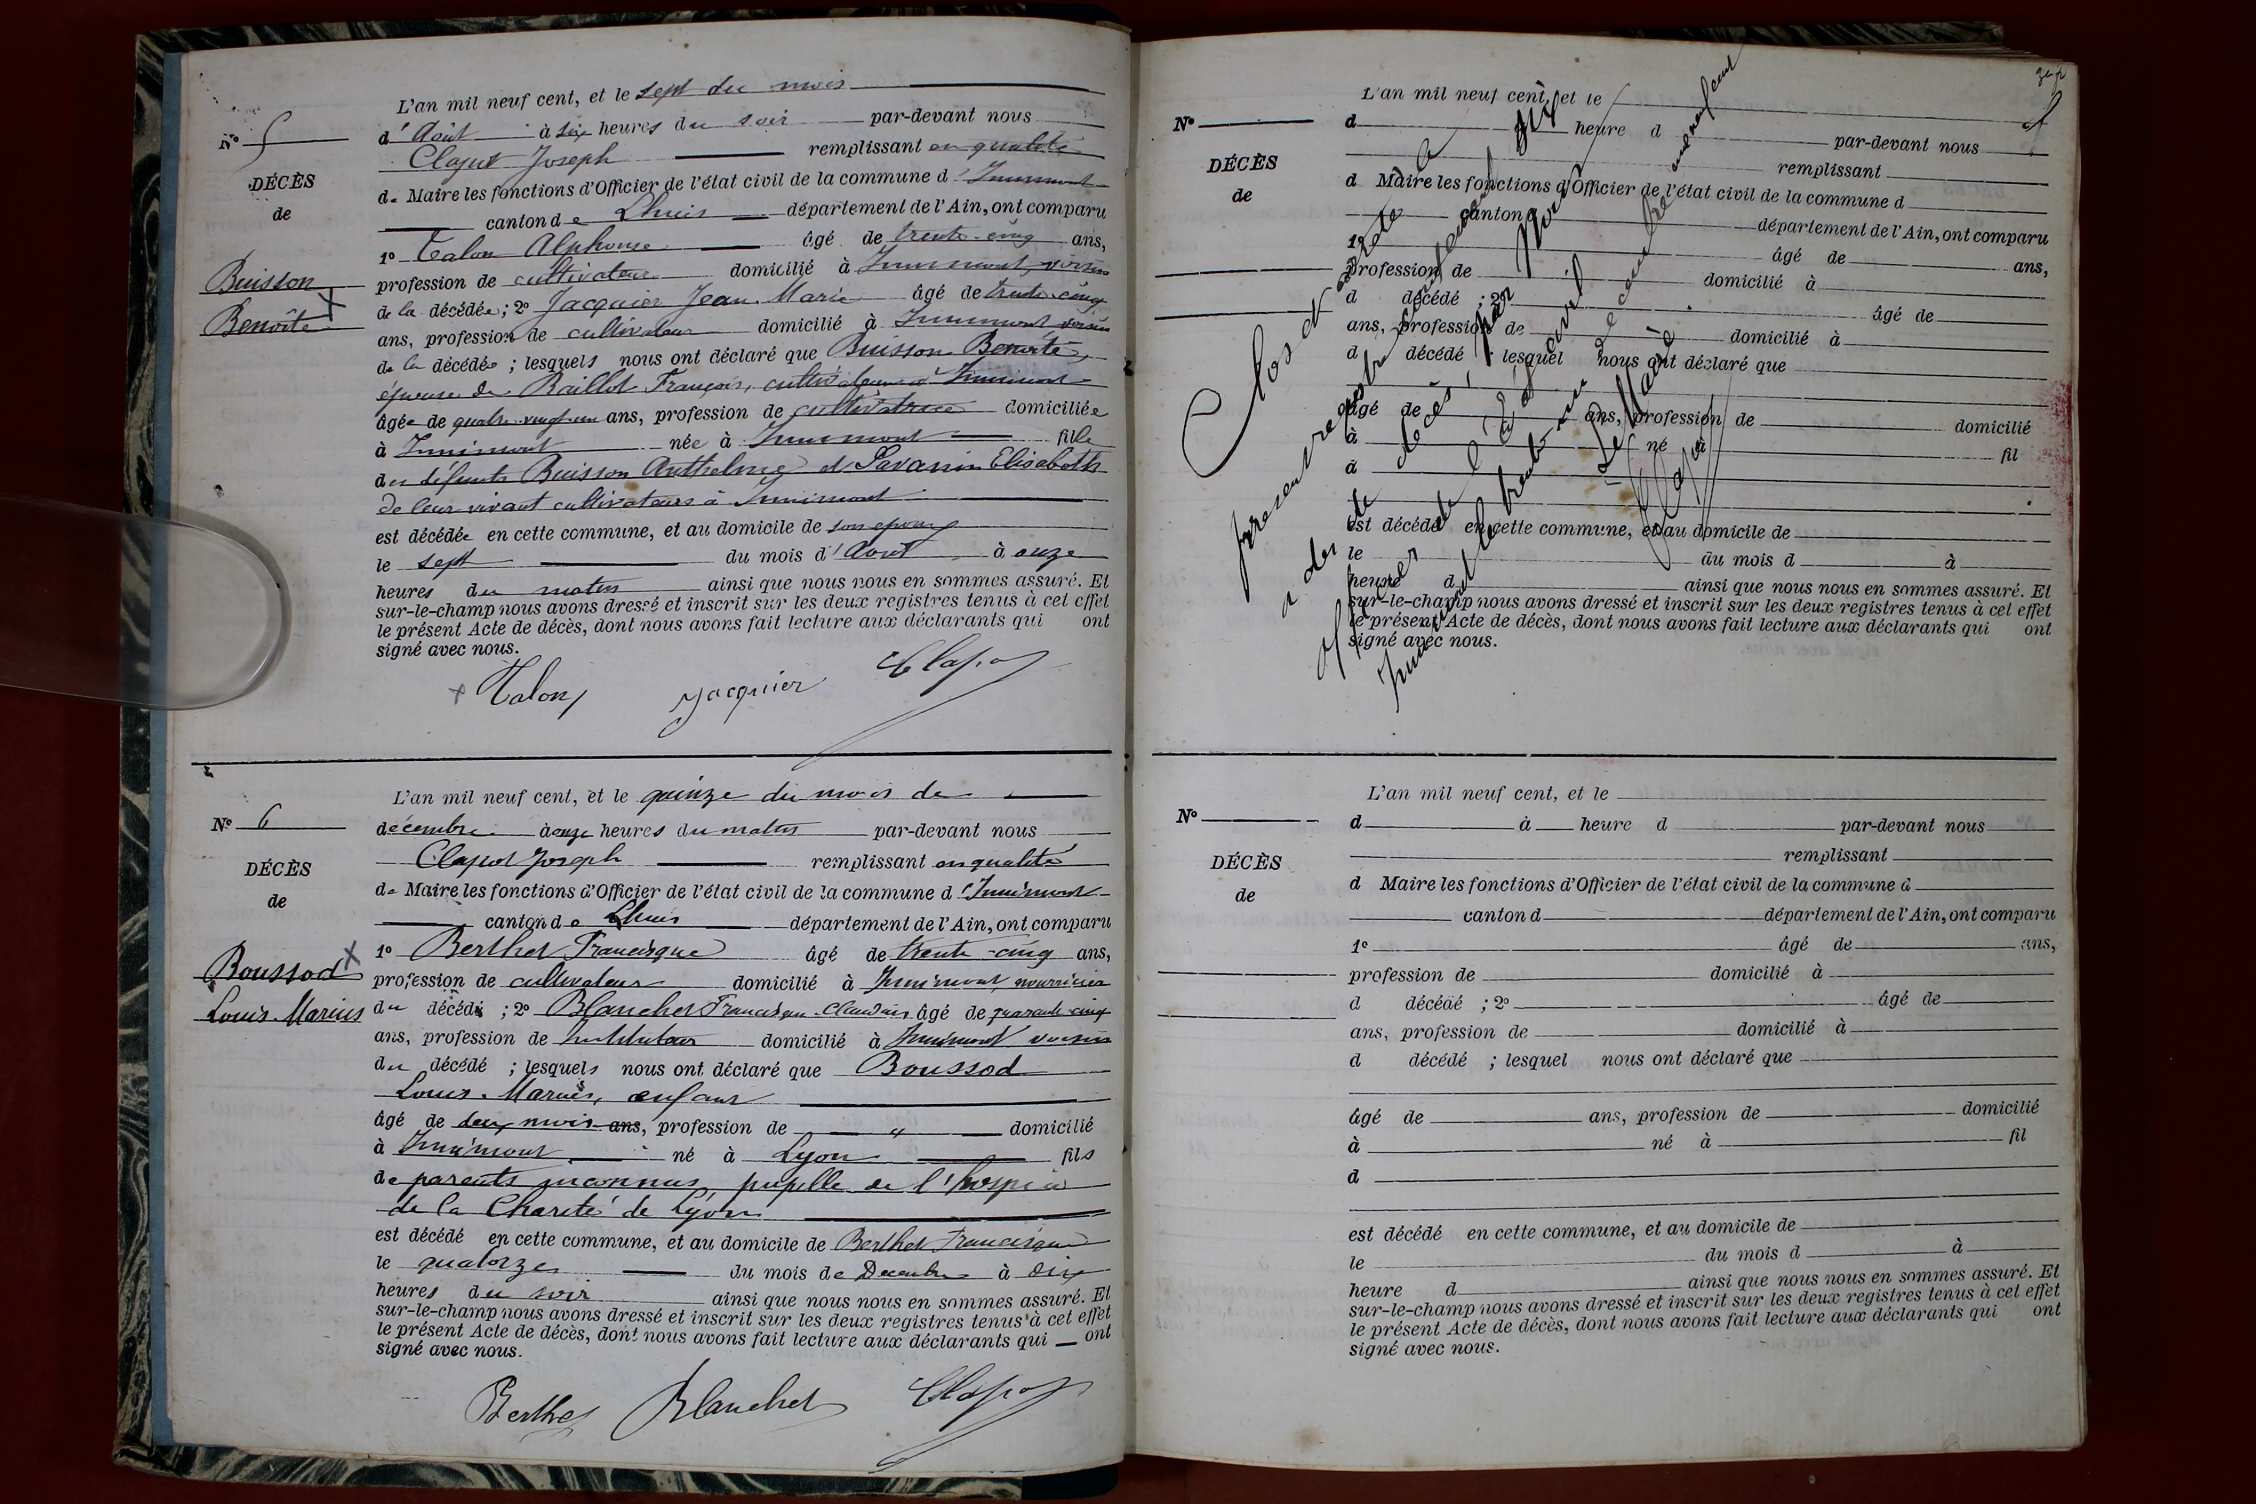 L'an mil neuf cent, et le sept du mois
N° 5
d'Août à six heures du soir par-devant nous
Clapot Joseph remplissant en qualité
DÉCÈS
de Maire les fonctions d'Officier de l'état civil de la commune d'Innimont
de
canton de Lhuis département de l'Ain, ont comparu
1° Talon Alphonse âgé de trente-cinq ans,
Buisson
profession de cultivateur domicilié à Innimont, voisin
Benoîte
de la décédée ; 2° Jacquier Jean Marie âgé de trente-cinq
ans, profession de cultivateur domicilié à Innimont voisin
de la décédée ; lesquels nous ont déclaré que Buisson Benoîte,
épouse de Baillot François, cultivateur à Innimont
âgée de quatre-vingt-un ans, profession de cultivatrice domiciliée
à Innimont née à Innimont fille
des défunts Buisson Anthelme et Savarin Elisabeth
de leur vivant cultivateurs à Innimont
est décédée en cette commune, et au domicile de son époux
le sept du mois d'Août à onze
heures du matin ainsi que nous nous en sommes assuré. Et
sur-le-champ nous avons dressé et inscrit sur les deux registres tenus à cet effet
le présent Acte de décès, dont nous avons fait lecture aux déclarants qui ont
signé avec nous.
Talon Jacquier Clapot
L'an mil neuf cent, et le quinze du mois de
N° 6
décembre à onze heures du matin par-devant nous
Clapot Joseph remplissant en qualité
DÉCÈS
de Maire les fonctions d'Officier de l'état civil de la commune d'Innimont
de
canton de Lhuis département de l'Ain, ont comparu
1° Berthet Francisque âgé de trente-cinq ans,
Boussod
profession de cultivateur domicilié à Innimont, nourricier
Louis Marius
du décédé ; 2° Blanchet Francisque Claudius âgé de quarante-cinq
ans, profession de Instituteur domicilié à Innimont voisin
du décédé ; lesquels nous ont déclaré que Boussod
Louis Marius, enfant
âgé de deux mois ans, profession de " domicilié
à Innimont né à Lyon fils
de parents inconnus, pupille de l'hospice
de la Charité de Lyon
est décédé en cette commune, et au domicile de Berthet Francisque
le quatorze du mois de Décembre à dix
heures du soir ainsi que nous nous en sommes assuré. Et
sur-le-champ nous avons dressé et inscrit sur les deux registres tenus à cet effet
le présent Acte de décès, dont nous avons fait lecture aux déclarants qui ont
signé avec nous.
Berthet Blanchet Clapot
L'an mil neuf cent, et le
N°
d à heure d par-devant nous
remplissant
DÉCÈS
d Maire les fonctions d'Officier de l'état civil de la commune d
de
canton d département de l'Ain, ont comparu
1° âgé de ans,
profession de domicilié à
d décédé ; 2° âgé de
ans, profession de domicilié à
d décédé ; lesquel nous ont déclaré que
âgé de ans, profession de domicilié
à né à fil
d
est décédé en cette commune, et au domicile de
le du mois d à
heure d ainsi que nous nous en sommes assuré. Et
sur-le-champ nous avons dressé et inscrit sur les deux registres tenus à cet effet
le présent Acte de décès, dont nous avons fait lecture aux déclarants qui ont
signé avec nous.
Clos et arrêté le
présent registre contenant six
actes de décès, par Nous
officier de l'Etat civil
Innimont le trente-un Décembre mil neuf cent
Le Maire
Clapot
L'an mil neuf cent, et le
N°
d à heure d par-devant nous
remplissant
DÉCÈS
d Maire les fonctions d'Officier de l'état civil de la commune d
de
canton d département de l'Ain, ont comparu
1° âgé de ans,
profession de domicilié à
d décédé ; 2° âgé de
ans, profession de domicilié à
d décédé ; lesquel nous ont déclaré que
âgé de ans, profession de domicilié
à né à fil
d
est décédé en cette commune, et au domicile de
le du mois d à
heure d ainsi que nous nous en sommes assuré. Et
sur-le-champ nous avons dressé et inscrit sur les deux registres tenus à cet effet
le présent Acte de décès, dont nous avons fait lecture aux déclarants qui ont
signé avec nous.